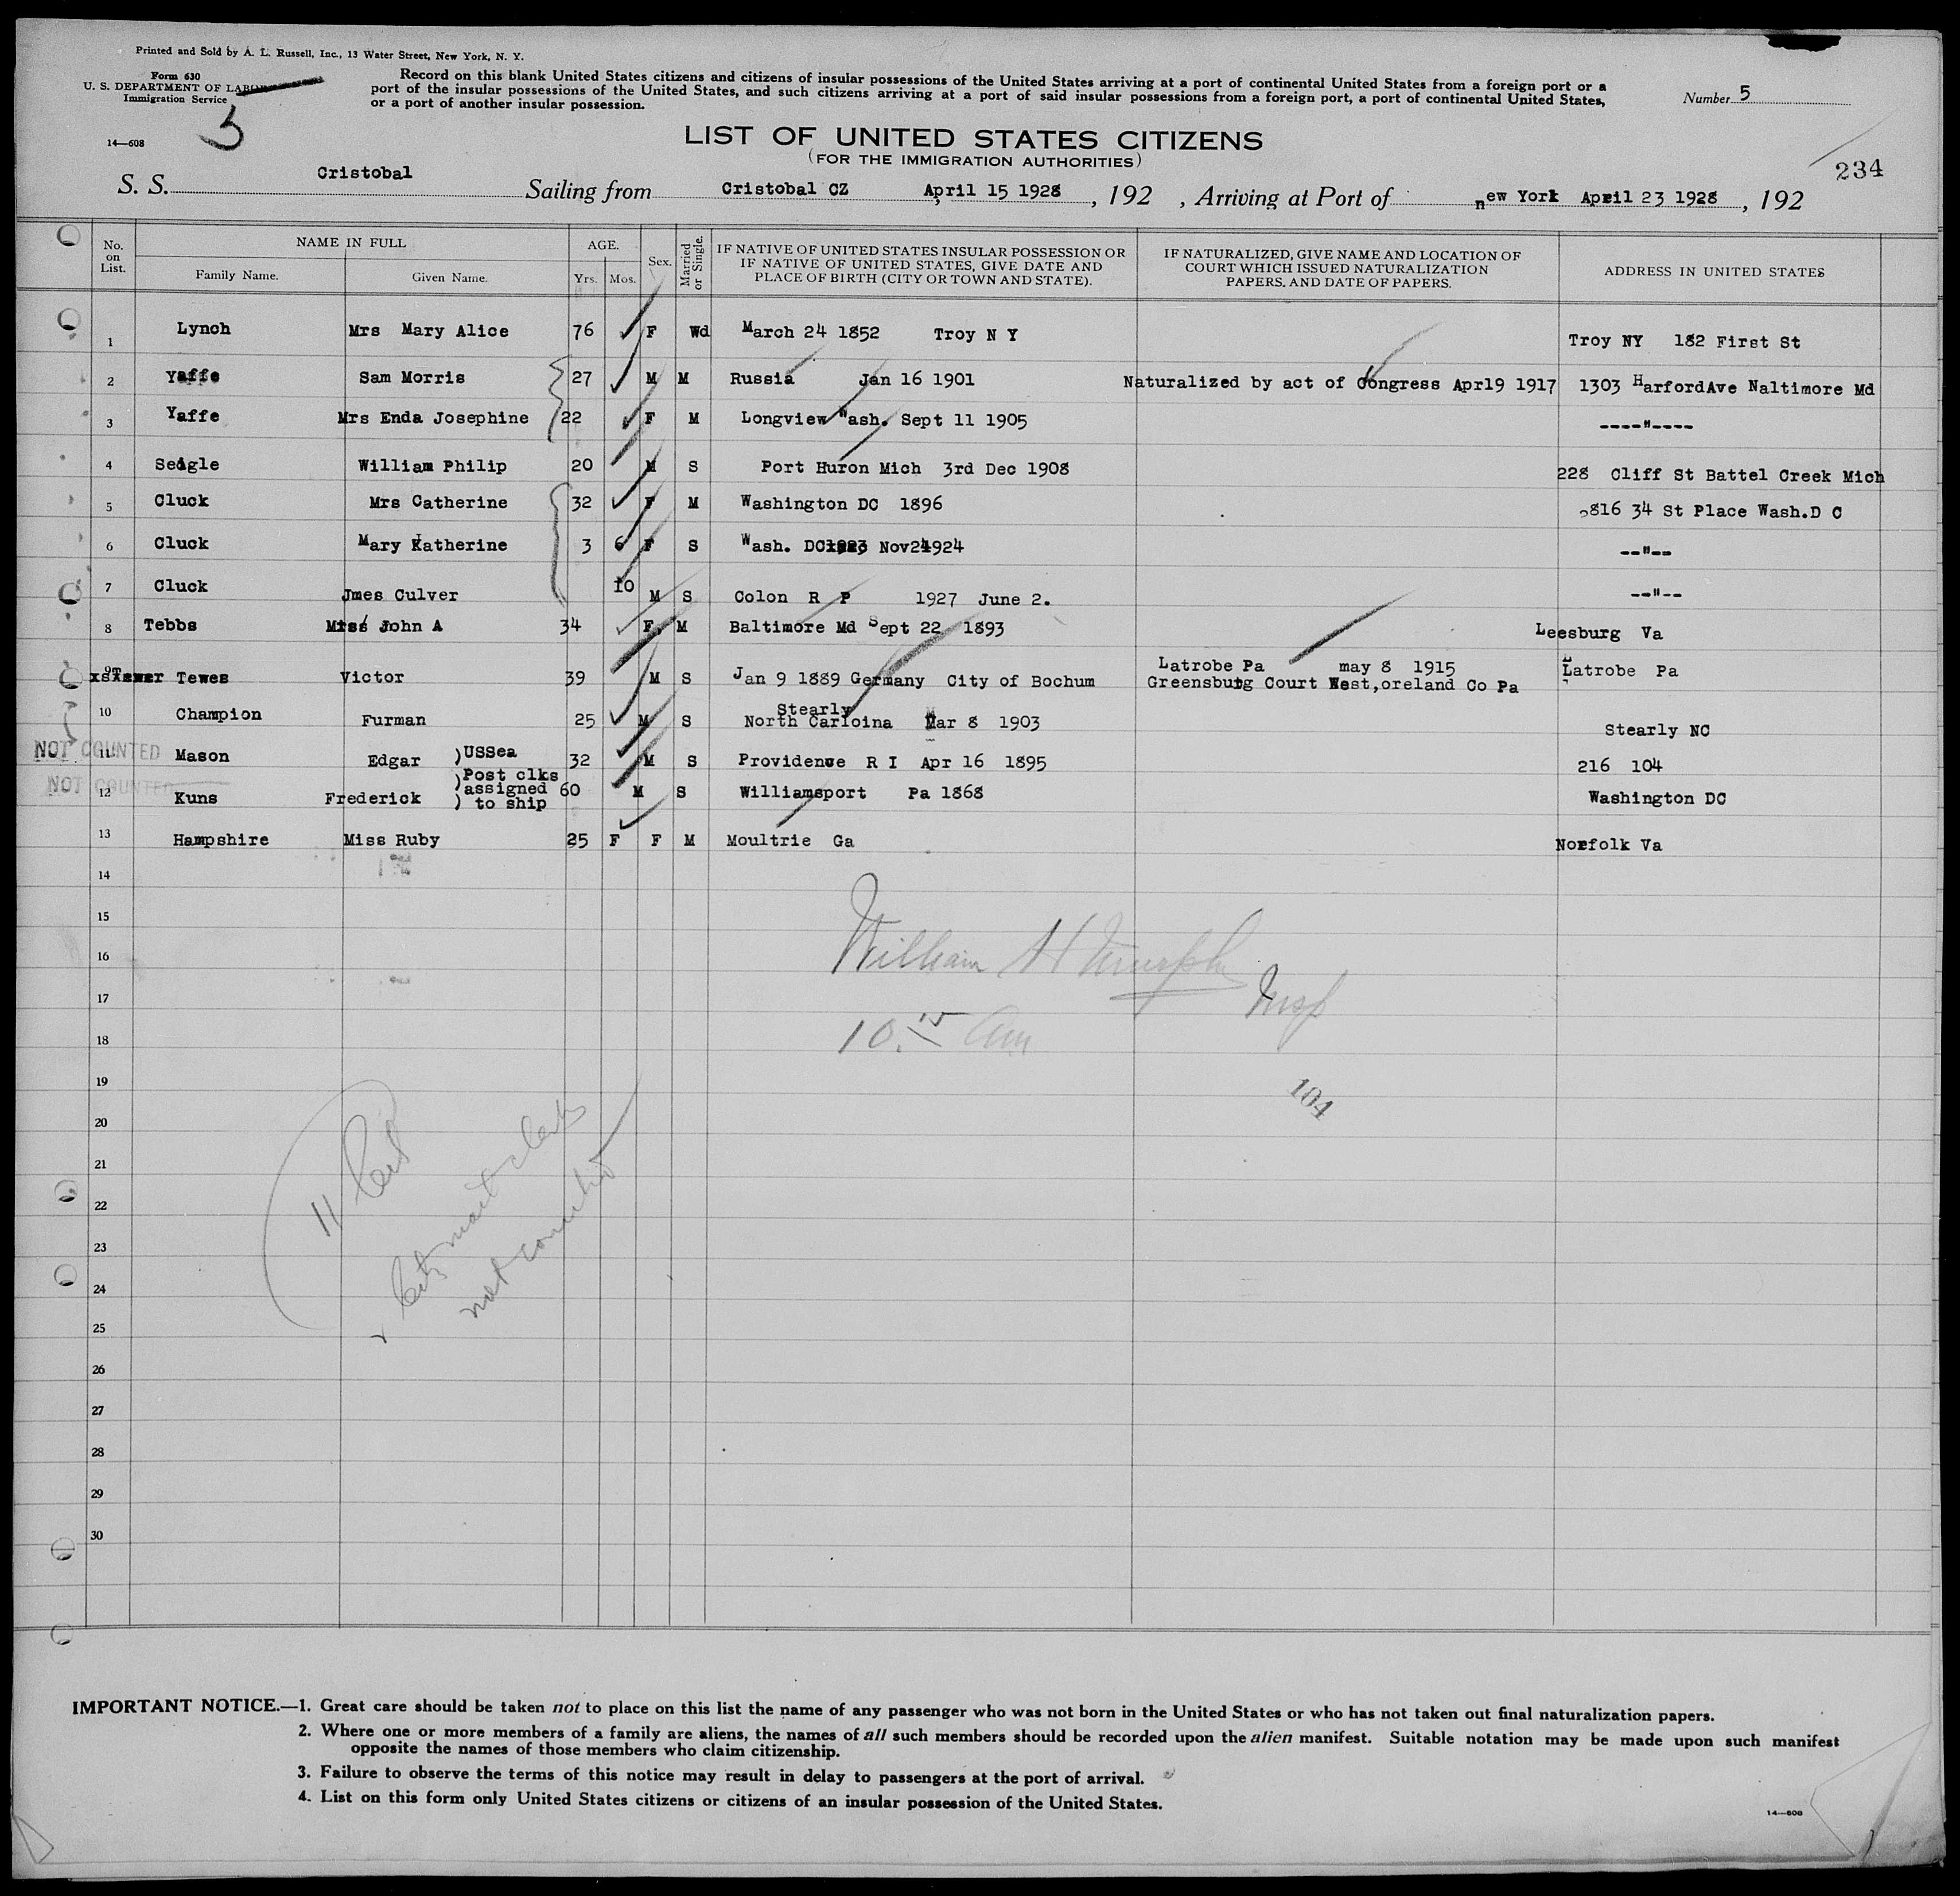 Printed and Sold by A. L. Russell, Inc., 13 Water Street, New York, N. Y.
Form 630
U. S. DEPARTMENT OF LABOR
Immigration Service
14—608
5
Record on this blank United States citizens and citizens of insular possessions of the United States arriving at a port of continental United States from a foreign port or a
port of the insular possessions of the United States, and such citizens arriving at a port of said insular possessions from a foreign port, a port of continental United States,
or a port of another insular possession.
Number 5
LIST OF UNITED STATES CITIZENS
(FOR THE IMMIGRATION AUTHORITIES)
234
S. S. Cristobal Sailing from Cristobal CZ April 15 1928, 192 , Arriving at Port of new York April 23 1928, 192
No. on List. NAME IN FULL Family Name. Given Name. AGE. Yrs. Mos. Sex. Married or Single. IF NATIVE OF UNITED STATES INSULAR POSSESSION OR IF NATIVE OF UNITED STATES, GIVE DATE AND PLACE OF BIRTH (CITY OR TOWN AND STATE). IF NATURALIZED, GIVE NAME AND LOCATION OF COURT WHICH ISSUED NATURALIZATION PAPERS, AND DATE OF PAPERS. ADDRESS IN UNITED STATES
1 Lynch Mrs Mary Alice 76 F Wd March 24 1852 Troy N Y Troy NY 182 First St
2 Yaffe Sam Morris 27 M M Russia Jan 16 1901 Naturalized by act of Congress Apr19 1917 1303 HarfordAve Naltimore Md
3 Yaffe Mrs Enda Josephine 22 F M Longview Wash. Sept 11 1905 ----"----
4 Seigle William Philip 20 M S Port Huron Mich 3rd Dec 1908 228 Cliff St Battel Creek Mich
5 Cluck Mrs Catherine 32 F M Washington DC 1896 2816 34 St Place Wash.D C
6 Cluck Mary Katherine 3 6 F S Wash. DC Nov24 1924 --"--
7 Cluck Jmes Culver 10 M S Colon R P 1927 June 2. --"--
8 Tebbs John A 34 F M Baltimore Md Sept 22 1893 Leesburg Va
9 Tewes Victor 39 M S Jan 9 1889 Germany City of Bochum Latrobe Pa may 8 1915 Latrobe Pa
Greensburg Court West,oreland Co Pa
10 Champion Furman 25 M S Stearly North Carloina Mar 8 1903 Stearly NC
NOT COUNTED 11 Mason Edgar )USSea 32 M S Providence R I Apr 16 1895 216 104
)Post clks
NOT COUNTED 12 Kuns Frederick )assigned 60 M S Williamsport Pa 1868 Washington DC
) to ship
13 Hampshire Miss Ruby 25 F F M Moultrie Ga Norfolk Va
14
15
16 William H Murphy
17 Insp
18 10.15 Am
19
104
20
21 11 Cit
22 Cits mail clerks
23 not counted
24
25
26
27
28
29
30
IMPORTANT NOTICE.—1. Great care should be taken not to place on this list the name of any passenger who was not born in the United States or who has not taken out final naturalization papers.
2. Where one or more members of a family are aliens, the names of all such members should be recorded upon the alien manifest. Suitable notation may be made upon such manifest
opposite the names of those members who claim citizenship.
3. Failure to observe the terms of this notice may result in delay to passengers at the port of arrival.
4. List on this form only United States citizens or citizens of an insular possession of the United States.
14—608